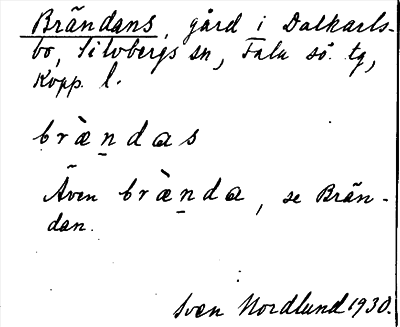 Brändans, gård i Dalkarls-
bo, Silvbergs sn, Falu sö. tg,
Kopp. l.
bræ̀n̠das
Även bræ̀n̠da, se Brän-
dan.
Sven Nordlund 1930.